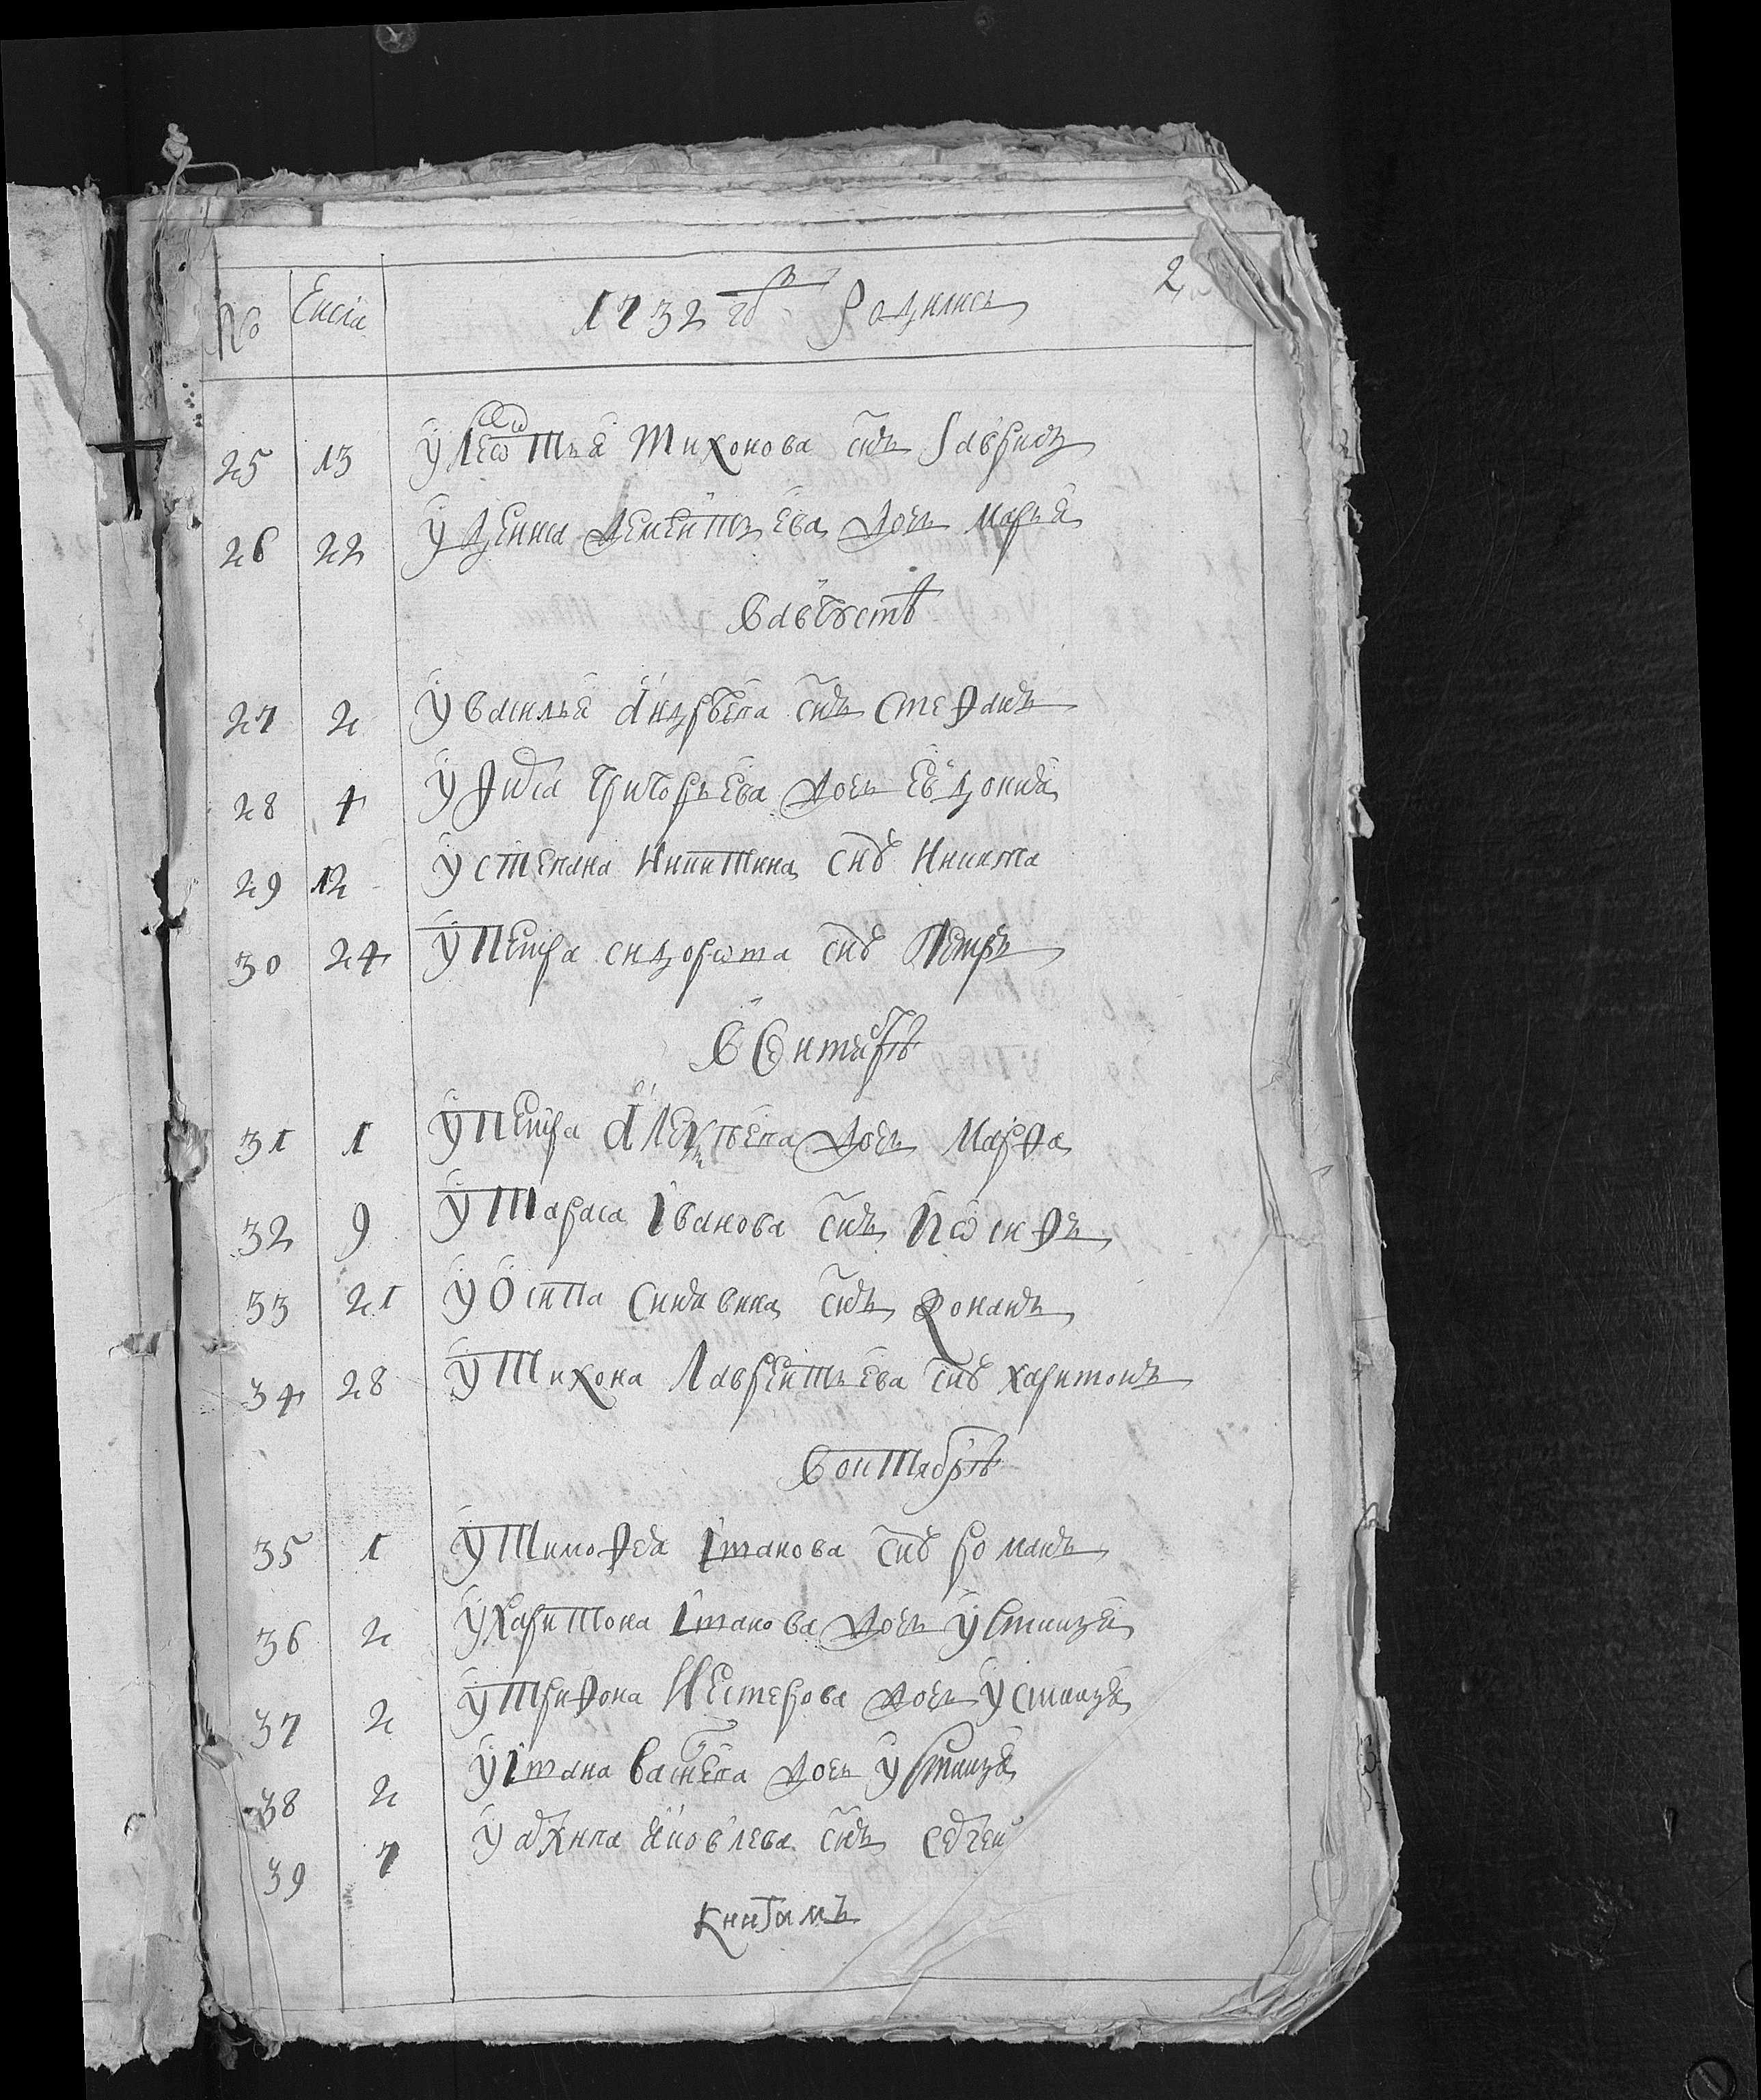 2
No Числа 1732 гд Родились
25 13 У Леѡтья Тихонова снъ Гаврилъ
26 22 У Дениса Дементьева дочь Марья
В августѣ
27 2 У Василья Андрѣева снъ Стефанъ
28 4 У Григорьева дочь Евдокия
29 12 У Степана Никитина снъ Никита
30 24 У Петра сидорѡва снъ Петръ
В Сентябрѣ
31 1 У Петра Алексѣева дочь Марфа
32 9 У Тараса Іванова снъ Иѡсифъ
33 21 У Осипа снъ Романъ
34 28 У Тихона Лаврентьева снъ харитонъ
В октябрѣ
35 1 У Тимофея Іванова снъ романъ
36 2 У Харитона Іванова дочь Устинья
37 2 У Трифона Нестерова дочь Устинья
38 2 У Івана Васильева дочь Устинья
39 7 У Яковлева снъ Сергей